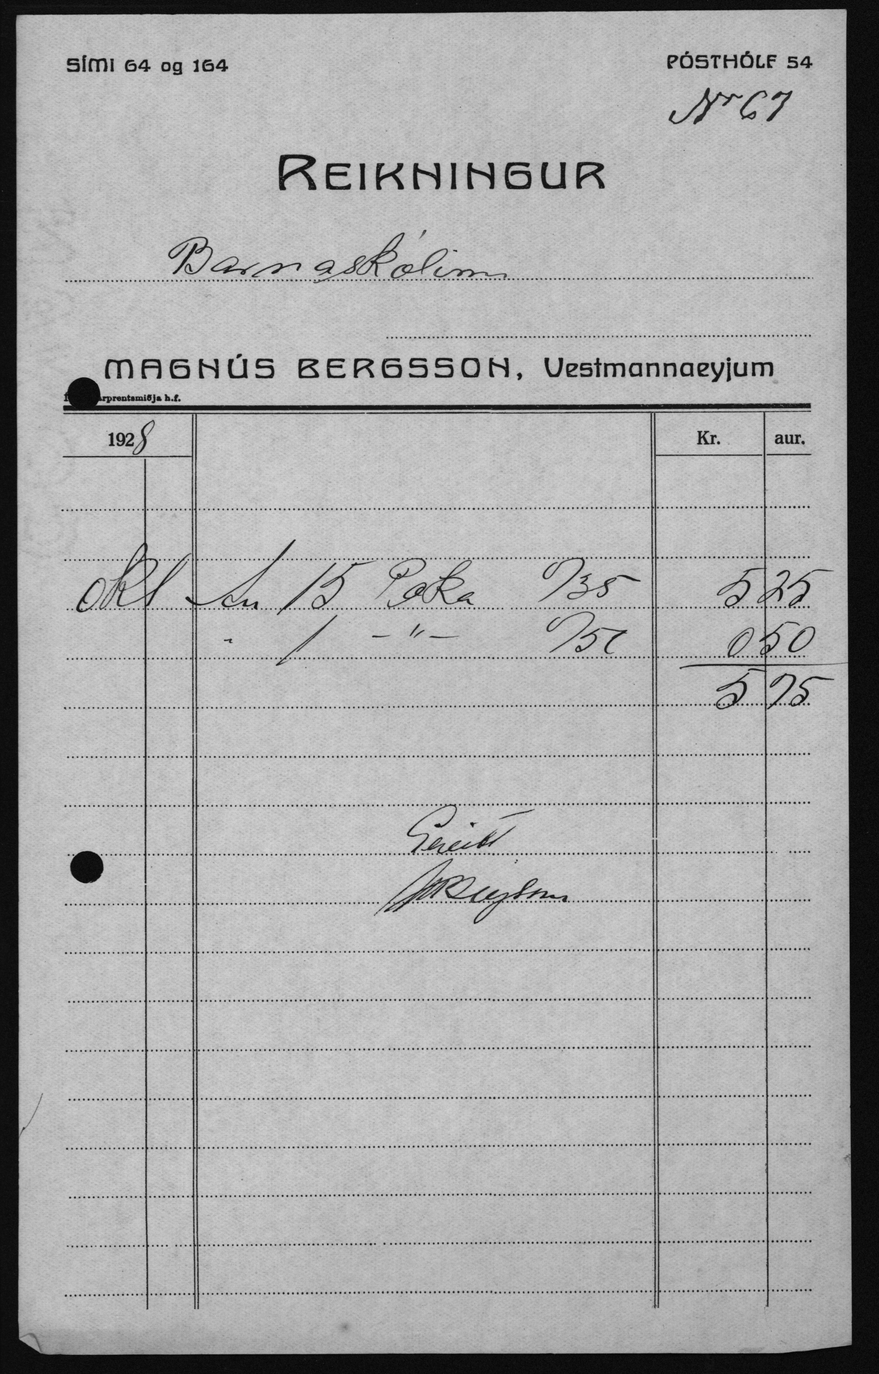 SÍMI 64 og 164
PÓSTHÓLF 54
Nr 67
REIKNINGUR
Barnaskólinn
MAGNÚS BERGSSON, Vestmannaeyjum
arprentsmiðja h.f.
1928 Kr. aur.
okt An 15 Poka %35 5 25
" 1 -"- %50 0 50
5 75
Greitt